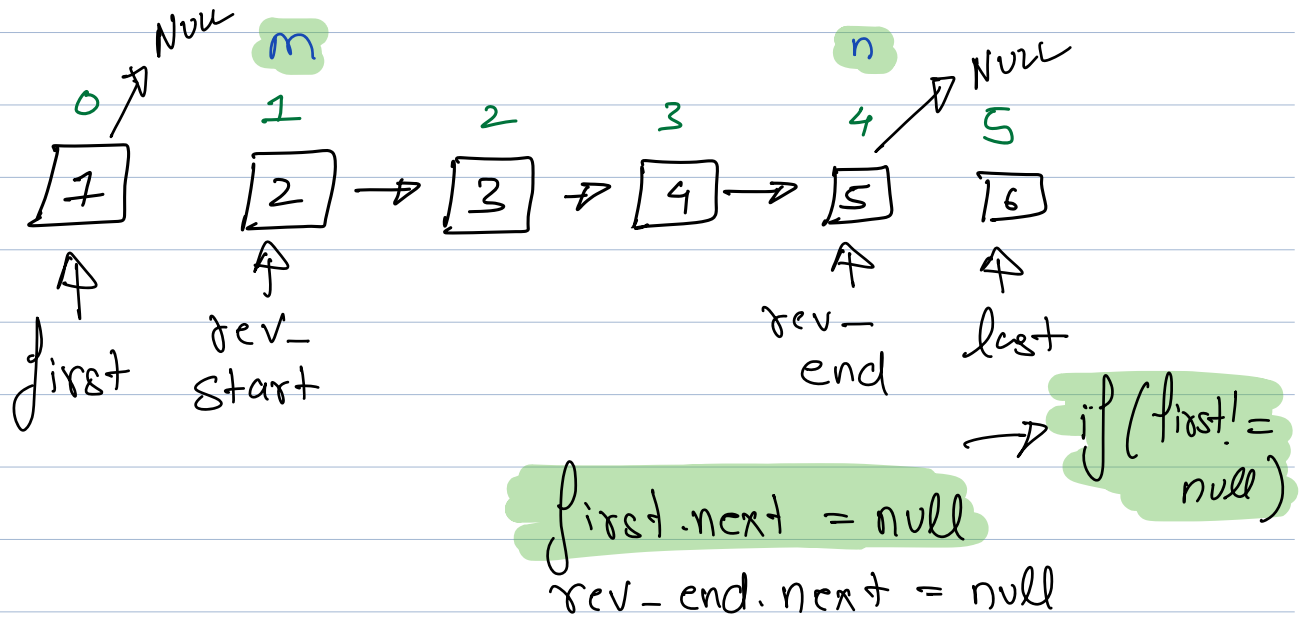 NULL m n NULL
0 1 2 3 4 5
1 2 3 4 5 6
first rev_start rev_end last
if(first!=
null)
first.next = null
rev_end.next = null